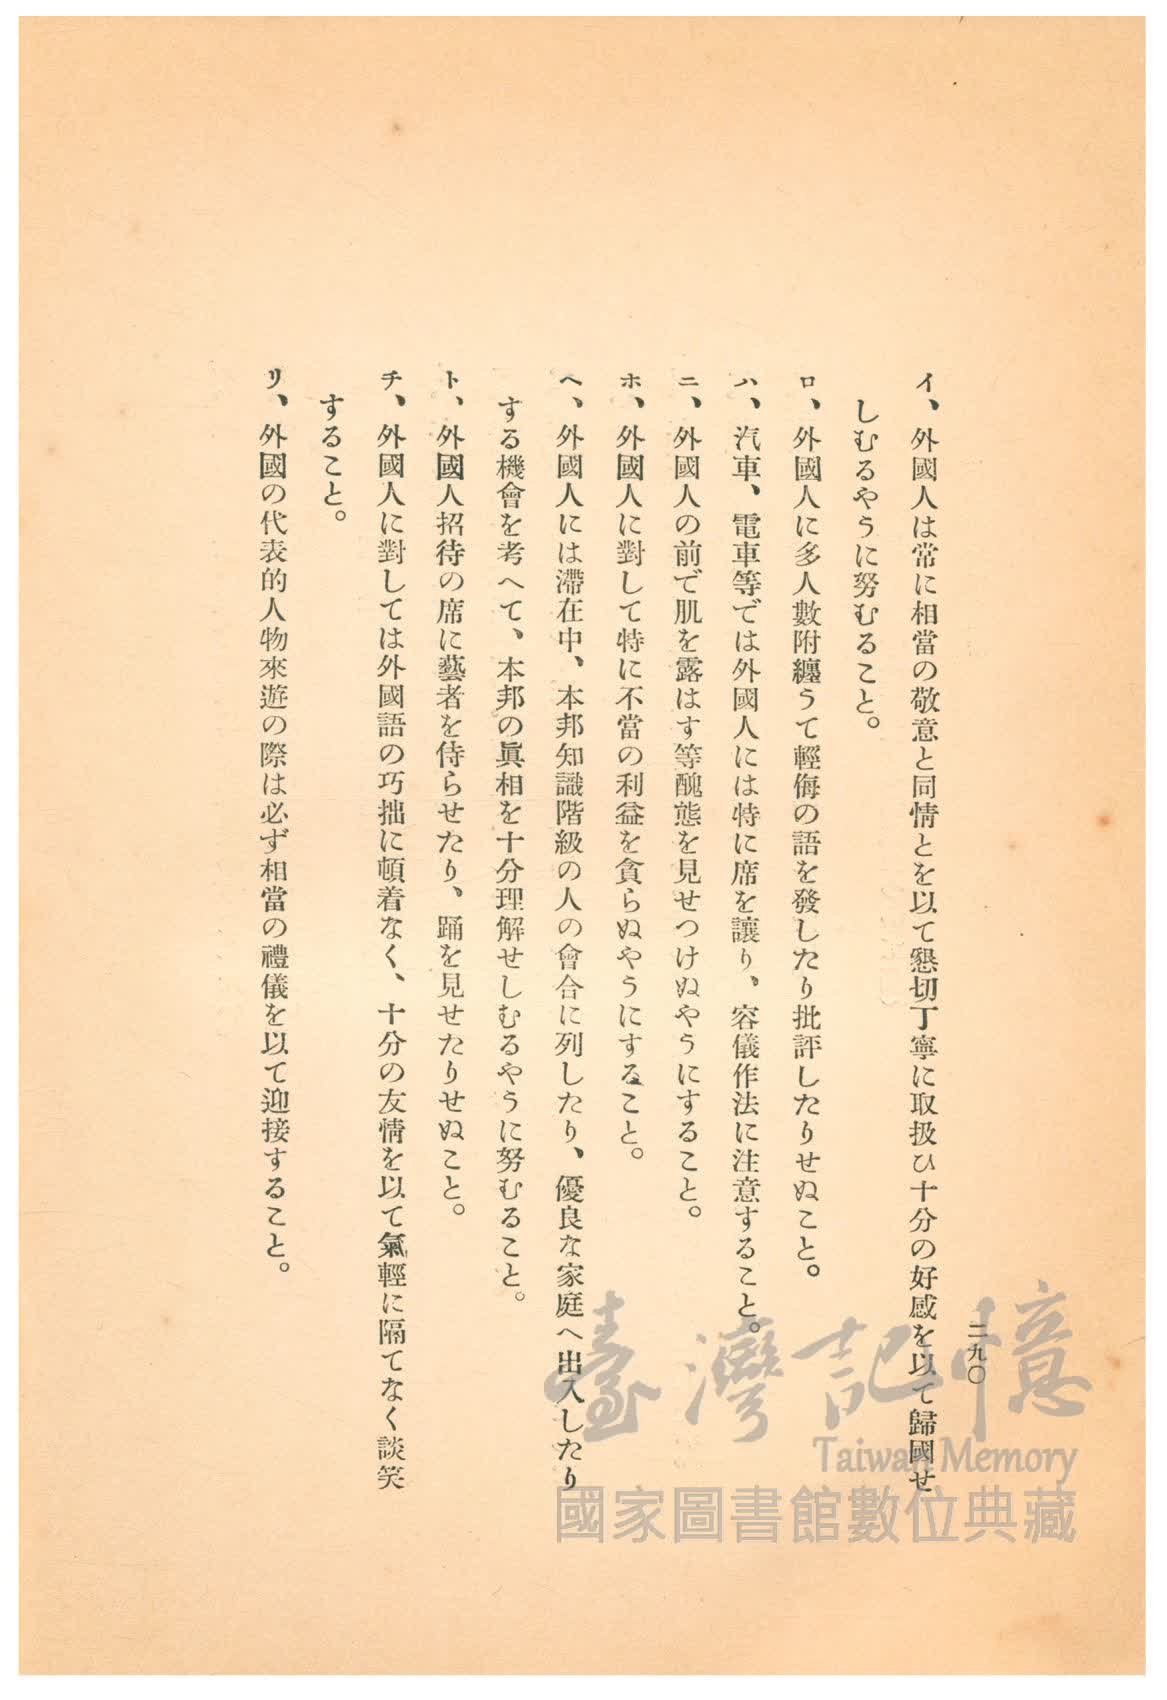 二九〇
イ、外國人は常に相當の敬意と同情とを以て懇切丁寧に取扱ひ十分の好感を以て歸國せ
しむるやうに努むること。
ロ、外國人に多人數附纏うて輕侮の語を發したり批評したりせぬこと。
ハ、汽車、電車等では外國人には特に席を讓り、容儀作法に注意すること。
ニ、外國人の前で肌を露はす等醜態を見せつけぬやうにすること。
ホ、外國人に對して特に不當の利益を貪らぬやうにすること。
ヘ、外國人には滯在中、本邦知識階級の人の會合に列したり、優良な家庭へ出入したり
する機會を考へて、本邦の眞相を十分理解せしむるやうに努むること。
ト、外國人招待の席に藝者を侍らせたり、踊を見せたりせぬこと。
チ、外國人に對しては外國語の巧拙に頓着なく、十分の友情を以て氣輕に隔てなく談笑
すること。
リ、外國の代表的人物來遊の際は必ず相當の禮儀を以て迎接すること。
臺灣記憶
Taiwan Memory
國家圖書館數位典藏